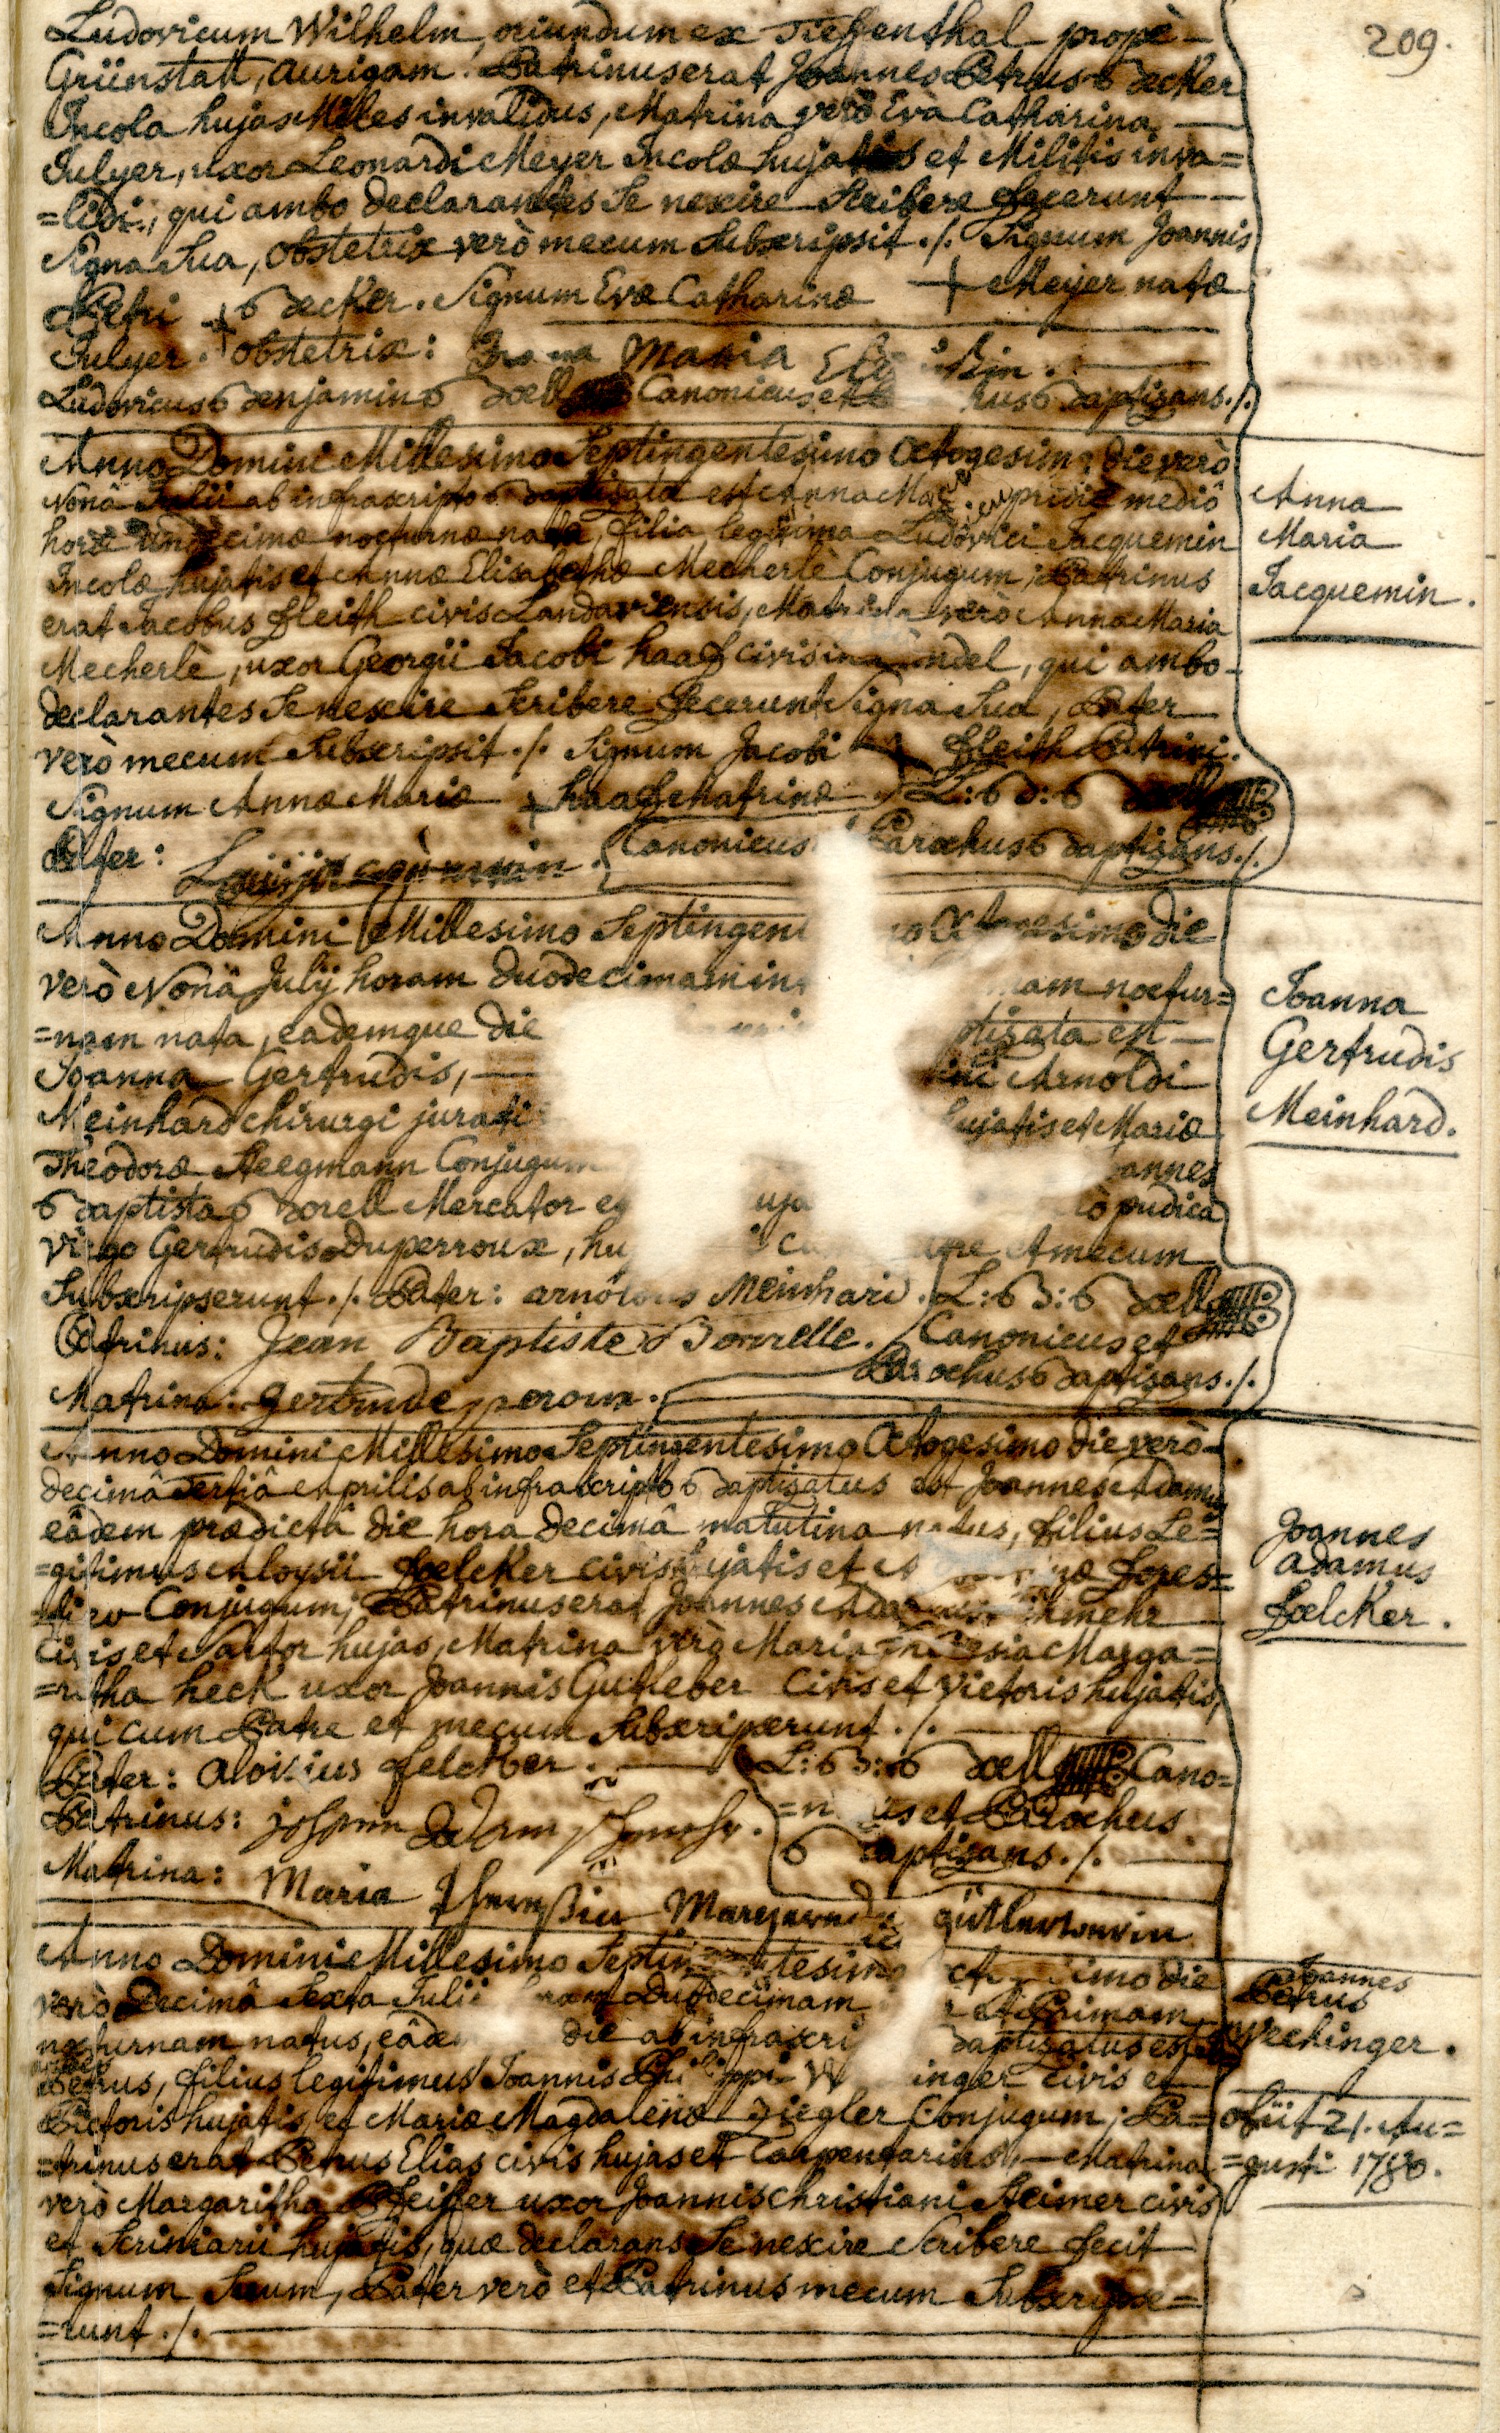 209.
Ludovicum Wilhelm, oriundum ex Tieffenthal propè
Grünstatt, aurigam. Patrinus erat Joannes Petrus Becker
Incola hujas Miles invalidus, Matrina verò Eva Catharina
Julyer, uxor Leonardi Meyer Incolæ hujatis et Militis inva=
=lidi, qui ambo declarantes Se nescire Scribere fecerunt
Signa Sua, obstetrix verò mecum Subscripsit ./. Signum Joannis
Petri + Becker. Signum Evæ Catharinæ + Meyer natæ
Julyer. obstetrix: Maria
Ludovicus Benjamin Boell Canonicus et Baptizans ./.
Anno Domini Millesimo Septingentesimo Octogesimo die verò
Nonâ Julii ab infrascripto Baptizata est Anna Maria pridie mediô
horæ undecimæ nocturnæ nata, filia legitima Ludovici Jacquemin
Incolæ hujatis et Annæ Elisabethæ Mecherlè Conjugum; Patrinus
erat Jacobus fleith civis Landaviensis, Matrina verò Anna Maria
Mecherlè, uxor Georgii Jacobi haaf civis in ndel, qui ambo
declarantes Se nescire Scribere fecerunt Signa Sua, Pater
verò mecum Subscripsit ./. Signum Jacobi + fleith Patrini.
Signum Annæ Mariæ + haaf Matrinæ L: B: Boell
Pater: Canonicus Parochus Baptizans ./.
Anna
Maria
Jacquemin.
Anno Domini Millesimo Septingent o Octogesimo die
verò Nonâ Julÿ horam duodecimam in am noctur=
=nam nata, eademque die ptizata est
Joanna Gertrudis, ini Arnoldi
Meinhard chirurgi jurati hujatis et Mariæ
Theodoræ Steegmann Conjugum annes
Baptista Borell Mercator uja ò pudica
virgo Gertrudis Duperroux, hu et mecum
Subscripserunt ./. Pater: arnoldus Meinhard. L: B: Boell
Patrinus: Jean Baptiste Borrelle. Canonicus et
Parochus Baptizans ./.
Matrina: gertrude peroux.
Joanna
Gertrudis
Meinhard.
Anno Domini Millesimo Septingentesimo Octogesimo die verò
decimâ Tertiâ Aprilis ab infrascripto Baptizatus est Joannes Adamus
eâdem prædictâ die hora decimâ matutina natus, filius Le=
=gitimus Aloysii foelcKer civis hujatis et næ fores=
Conjugum; Patrinus erat Joannes Adamus hmehr
Civis et Sartor hujas, Matrina verò Maria Theresia Marga=
=retha heck uxor Joannis Gutleber Civis et Vietoris hujatis,
qui cum Patre et mecum Subscripserunt ./.
Pater: Aloisius felcKer. L: B: Boell Cano=
Patrinus: Johann Adam =n us et Parochus
Baptizans ./.
Matrina: Maria
Joannes
Adamus
foelcKer.
Anno Domini Millesimo Septin tesimo Oct simo die
verò Decimâ Sexta Julii horam Duodecimam r et Primam
nocturnam natus, eâdem die ab infrascri Baptizatus est
Petrus, filius legitimus Joannis Philippi W inger civis et
Pictoris hujatis, et Mariæ Magdalenæ Ziegler Conjugum; Pa=
=trinus erat Petrus Elias civis hujas et Carpentarius, Matrina
verò Margaritha Pfeiffer uxor Joannis Christiani Steimer civis
et Scriniarii hujatis, quæ declarans Se nescire Scribere fecit
Signum Suum, Pater verò et Patrinus mecum Subscripse=
=runt ./.
Joannes
Petrus
Wechinger.
obiit 21. Au=
=gusti 1780.